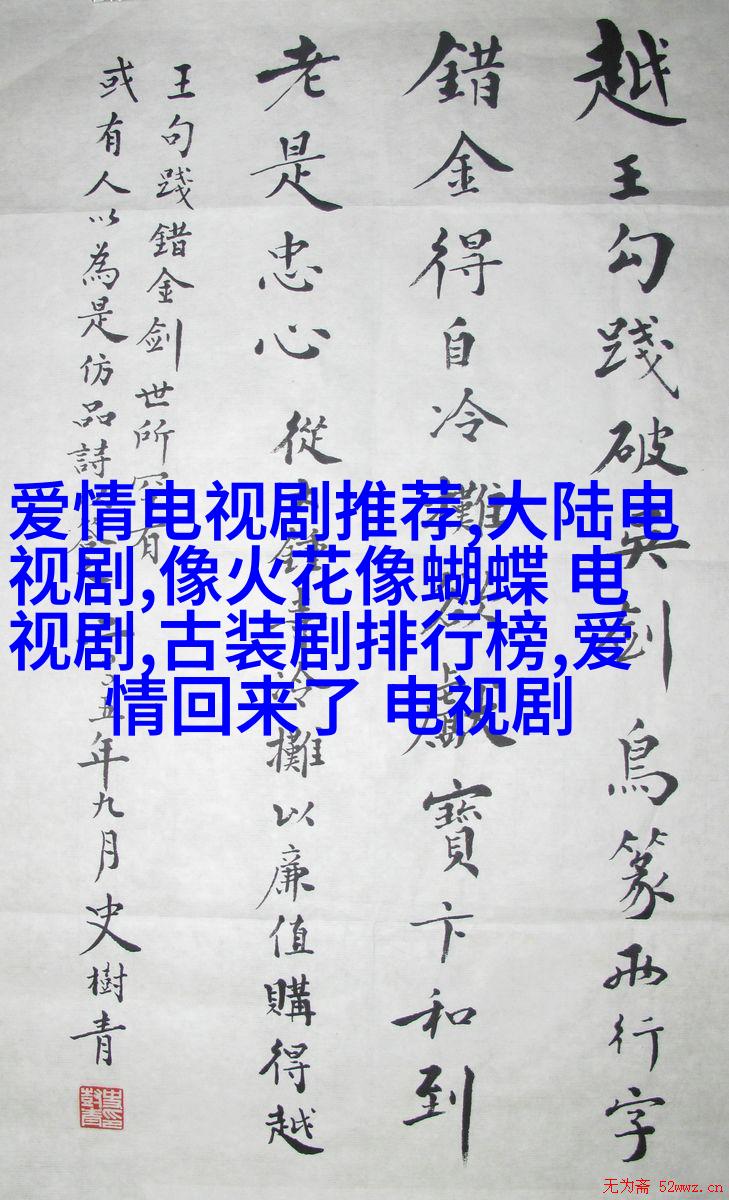 越王勾踐破吳剑鳥篆兩行字
錯金得自冷攤欲獻寶卞和到
老是忠心 從鍾寺冷攤以廉值購得越
王句踐錯金剑世所罕有
或有人以為是仿品詩五年九月史樹青
爱情电视剧推荐,大陆电
视剧,像火花像蝴蝶 电
视剧,古装剧排行榜,爱
情回来了 电视剧
无为斋 52wwz.cn